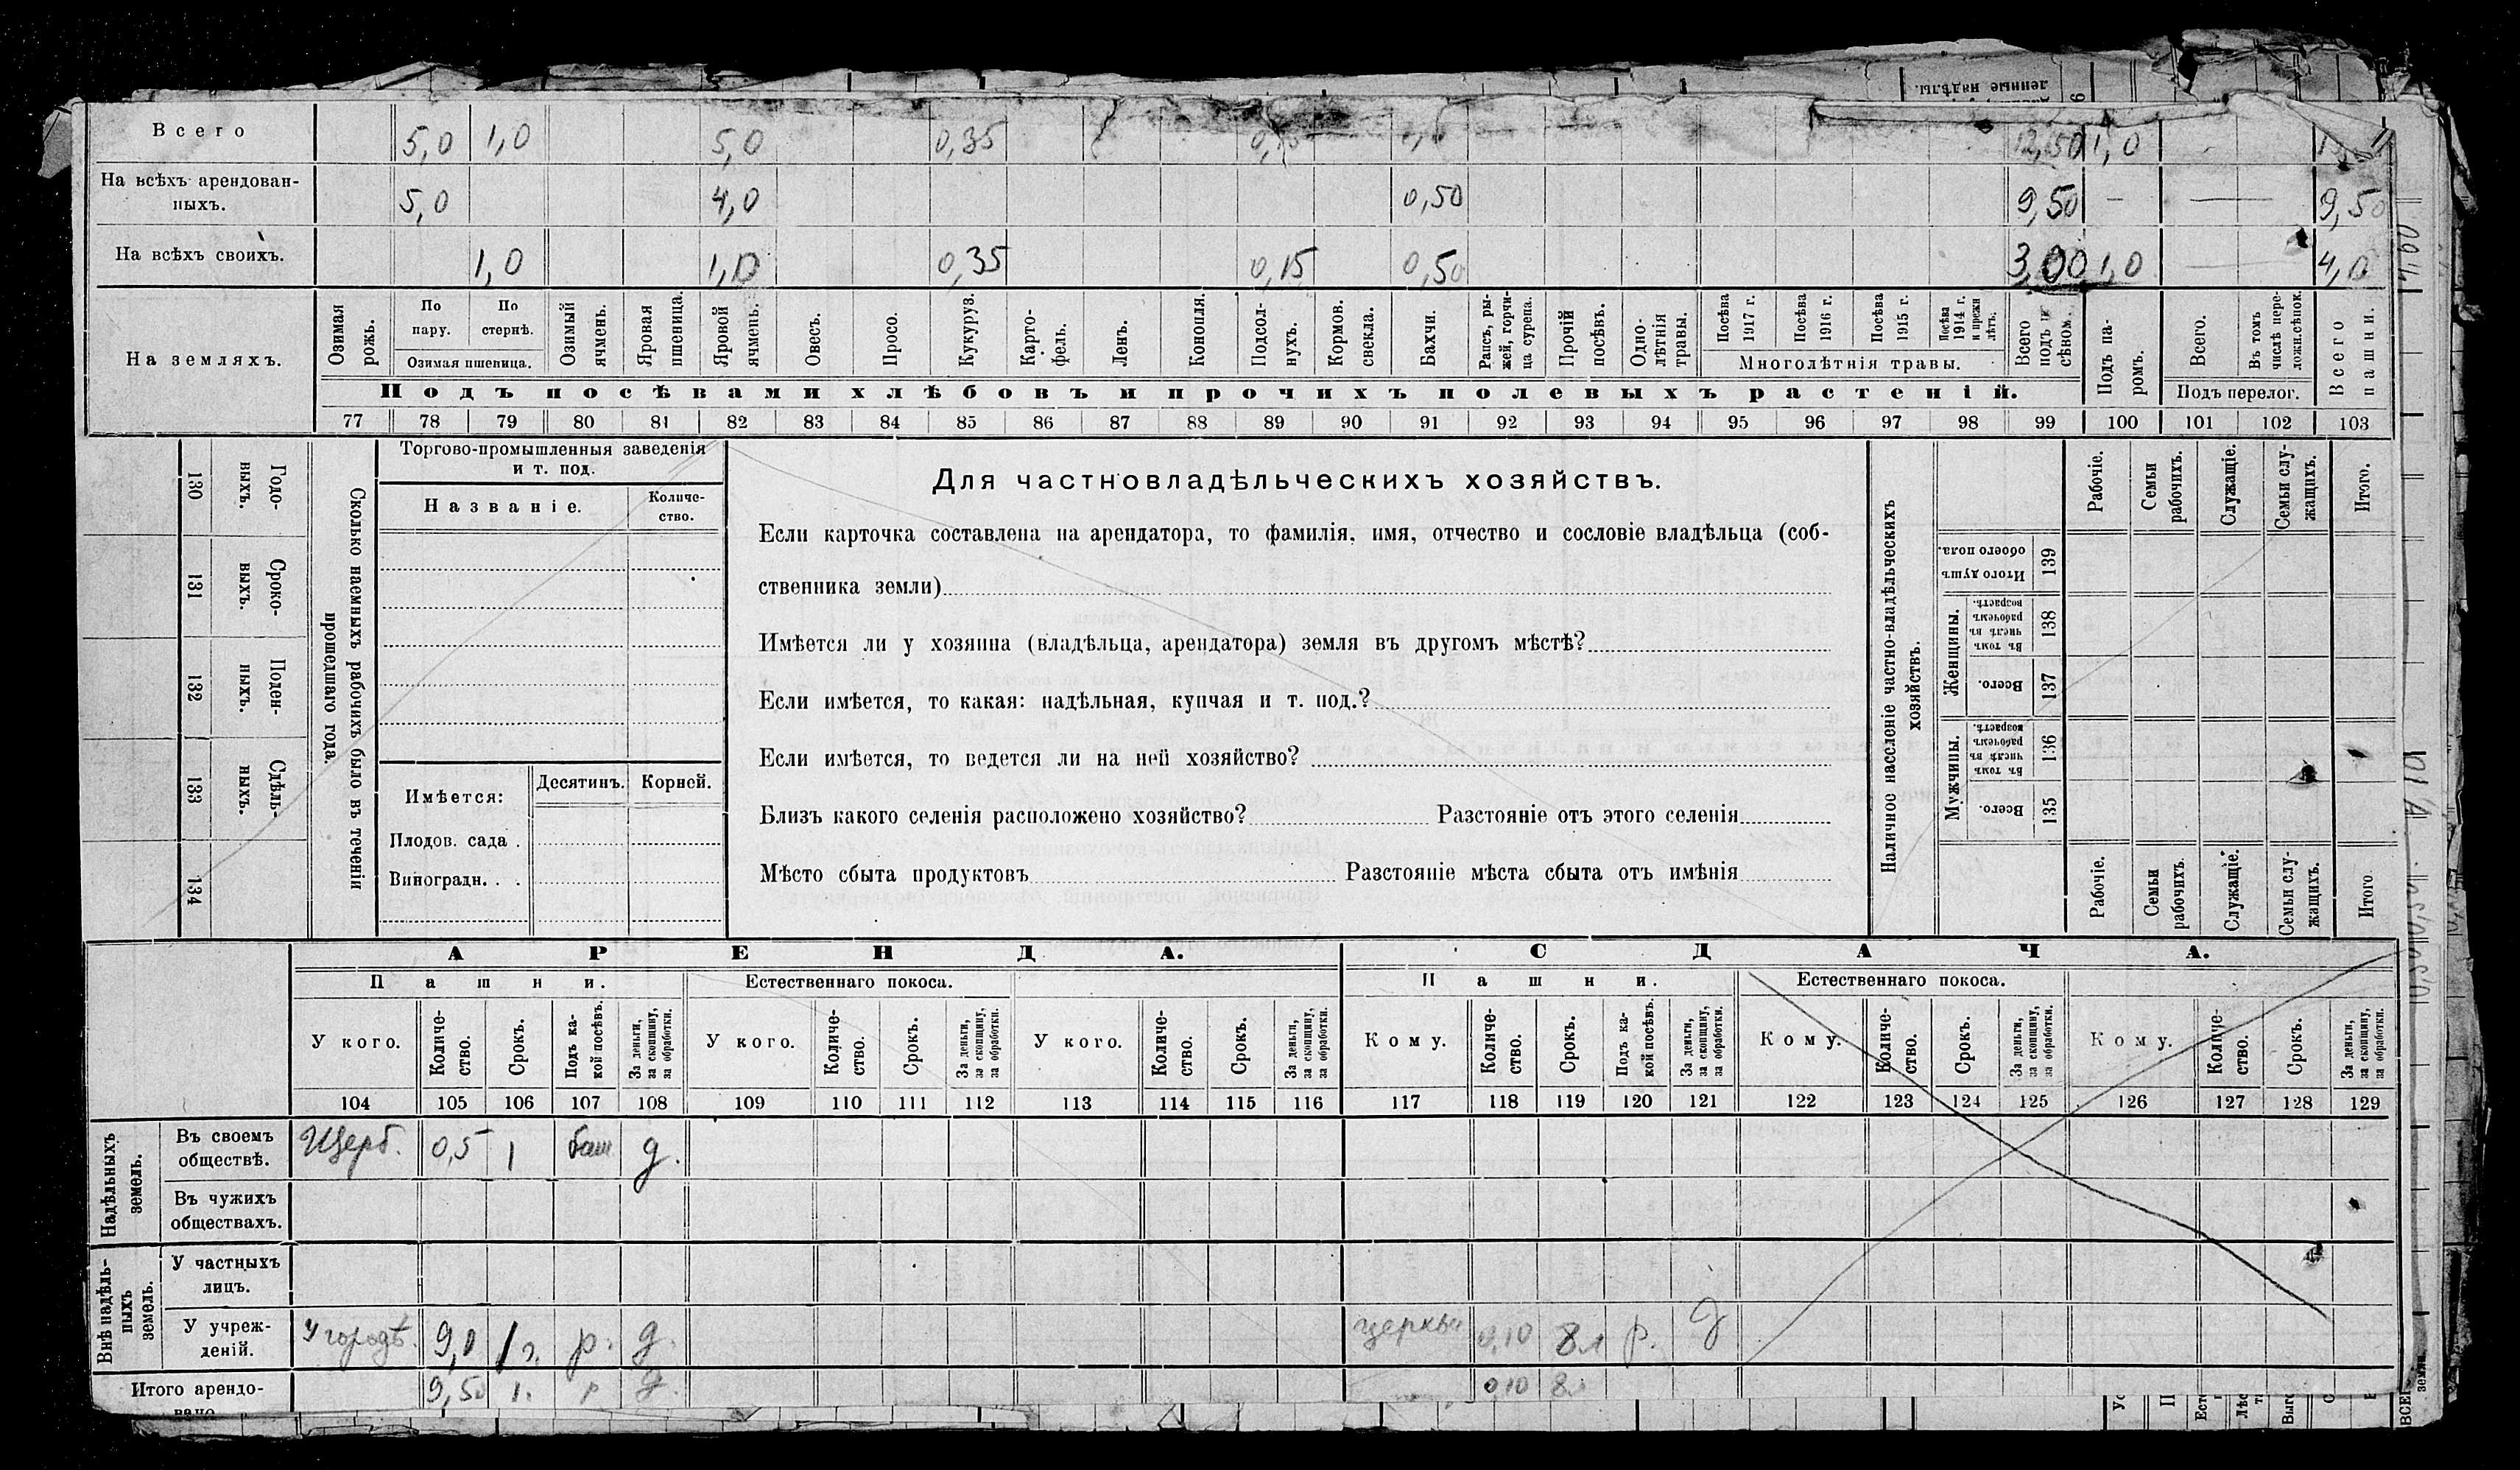 Всего 5,0 1,0 5,0 0,35 12,50 1,0
На всѣхъ арендован-
ныхъ. 5,0 4,0 0,50 9,50 — — 9,50
На всѣхъ своихъ. 1,0 1,0 0,35 0,15 0,50 3,00 1,0 — 4,0
На земляхъ.
Озимая рожь.
По пару.
По стернѣ.
Озимая пшеница.
Озимый ячмень.
Яровая пшеница.
Яровой ячмень.
Овесъ.
Просо.
Кукуруз.
Карто-
фель.
Ленъ.
Конопля.
Подсол-
нухъ.
Кормов. свекла.
Бахчи.
Рапсъ, ры-
жей, горчи-
ца сурепа.
Прочій посѣвъ.
Одно-
лѣтнія
травы.
Посѣва 1917 г.
Посѣва 1916 г.
Посѣва 1915 г.
Посѣва 1914 г. и прежн лѣтъ.
Многолѣтнія травы.
Всего подъ п сѣвом.
Подъ па-
ромъ.
Всего.
Въ томъ числѣ пере-
ложн.сѣнок.
Подъ перелог.
Всего пашни.
Подъ посѣвами хлѣбовъ и прочихъ полевыхъ растеній.
77 78 79 80 81 82 83 84 85 86 87 88 89 90 91 92 93 94 95 96 97 98 99 100 101 102 103
130 Годо-
выхъ.
131 Сроко-
выхъ.
132 Поден-
ныхъ.
133 Сдѣль-
ныхъ.
134
Сколько наемныхъ рабочихъ было въ теченіи
прошедшаго года.
Торгово-промышленныя заведенія
и т. под.
Названіе.
Количе-
ство.
Имѣется:
Десятинъ. Корней.
Плодов. сада .
Виноградн. . .
Для частновладѣльческихъ хозяйствъ.
Если карточка составлена на арендатора, то фамилія, имя, отчество и сословіе владѣльца (соб-
ственника земли)
Имѣется ли у хозяина (владѣльца, арендатора) земля въ другомъ мѣстѣ?
Если имѣется, то какая: надѣльная, купчая и т. под.?
Если имѣется, то ведется ли на ней хозяйство?
Близъ какого селенія расположено хозяйство? Разстояніе отъ этого селенія
Мѣсто сбыта продуктовъ Разстояніе мѣста сбыта отъ имѣнія
Наличное населеніе частно-владѣльческихъ
хозяйствъ.
Рабочіе.
Семьи рабочихъ.
Служащіе.
Семьи слу-
жащихъ.
Итого.
139 Итого душ обоего пола.
Женщины.
138 Въ томъ числѣ въ рабочемъ возрастѣ.
137 Всего.
Мужчины.
136 Въ томъ числѣ въ рабочемъ возрастѣ.
135 Всего.
Рабочіе.
Семьи рабочихъ.
Служащіе.
Семьи слу-
жащихъ.
Итого
АРЕНДА. СДАЧА.
Пашни. Естественнаго покоса. Пашни. Естественнаго покоса.
У кого. Количе-
ство. Срокъ. Подъ ка-
кой посѣвъ. За деньги, за скопщину, за обработки.
У кого. Количе-
ство. Срокъ. За деньги, за скопщину, за обработки.
У кого. Количе-
ство. Срокъ. За деньги, за скопщину, за обработки.
Кому. Количе-
ство. Срокъ. Подъ ка-
кой посѣвъ. За деньги, за скопщину, за обработки.
Кому. Количе-
ство. Срокъ. За деньги, за скопщину, за обработки.
Кому. Количе-
ство. Срокъ. За деньги, за скопщину, за обработки.
104 105 106 107 108 109 110 111 112 113 114 115 116 117 118 119 120 121 122 123 124 125 126 127 128 129
Надѣльныхъ земель.
Въ своемъ
обществѣ. Щерб. 0,5 1 баш д.
Въ чужихъ
обществахъ.
Внѣ надѣль-
ныхъ
земель.
У частныхъ
лицъ.
У учреж-
деній. У городѣ. 9,0 1 г. р. д. церкви 0,10 8л р. д
Итого арендо-
вано 9,50 1. р д. 0,10 8л